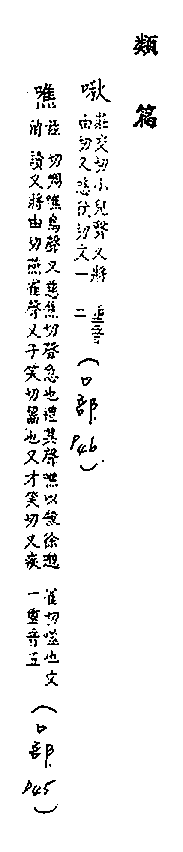 類篇
啾 莊交切小兒聲又將
由切又慈秋切文一
重音
二
(口部 P46)
噍 茲
消
切啁噍鳥聲又慈焦切聲急也禮其聲噍以殺徐邈
讀又將由切燕雀聲又子笑切齧也又才笑切又疾
雀切噬也文
一重音五
(口部 P45)